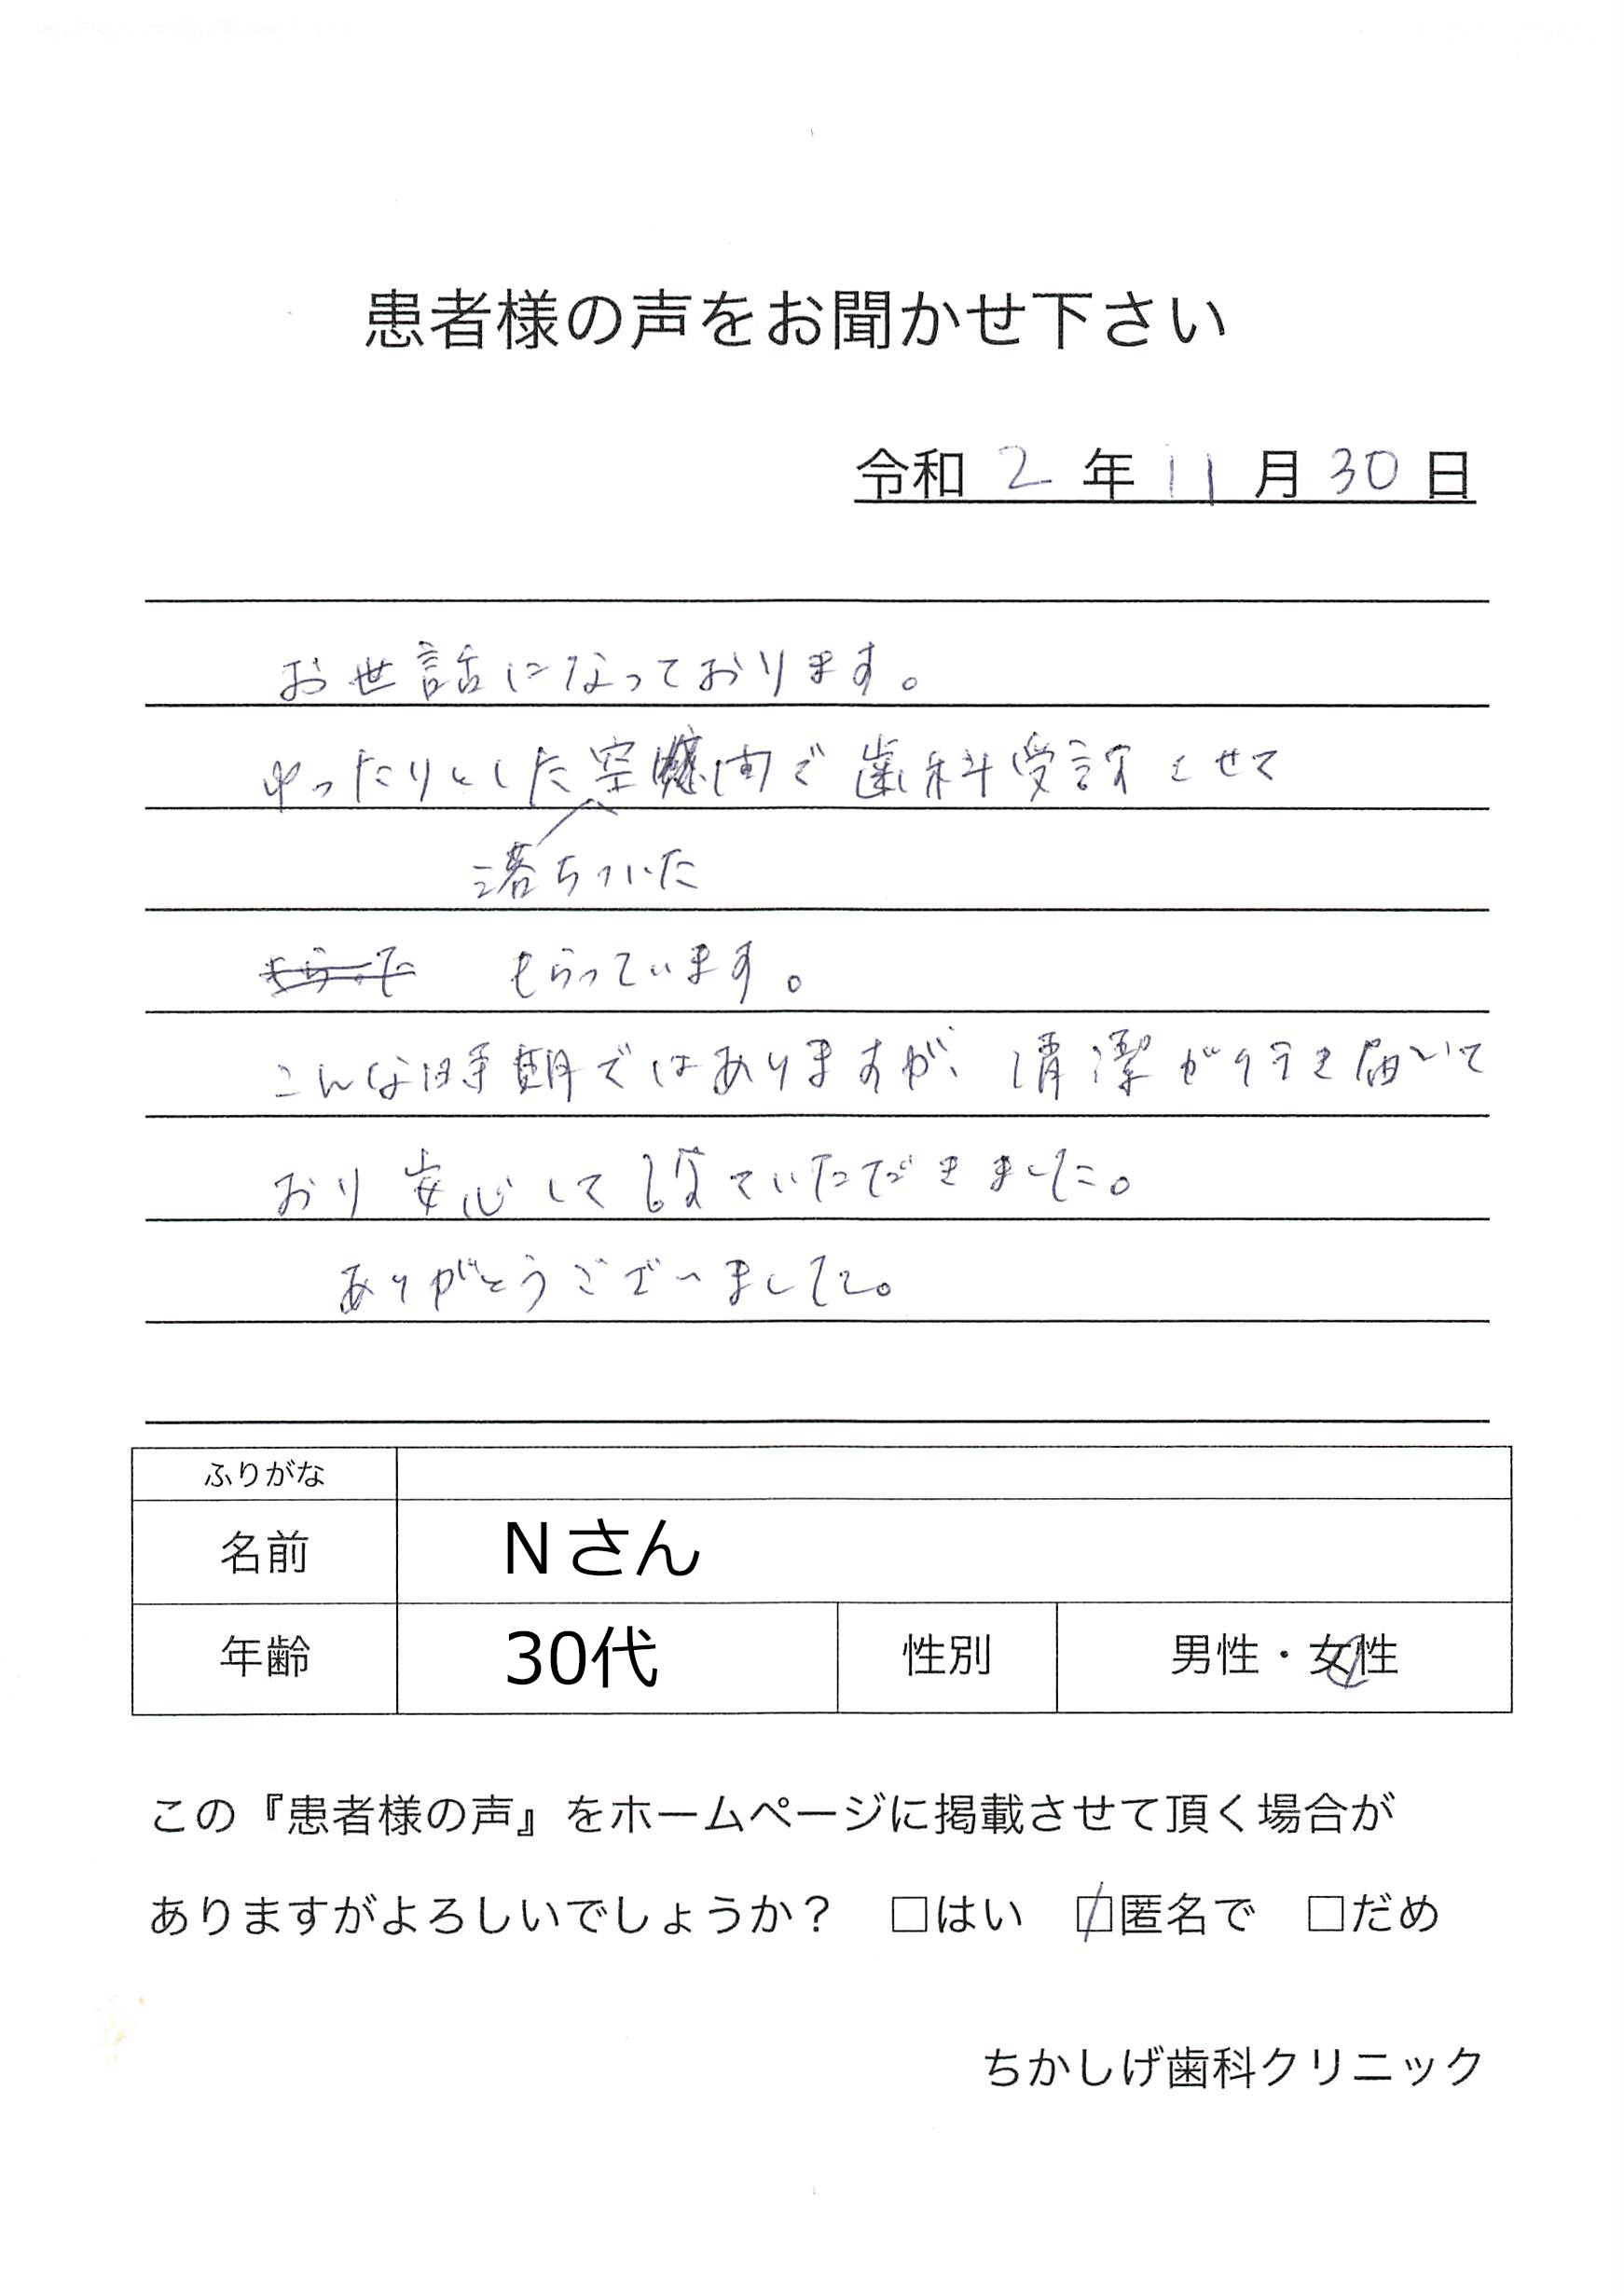 患者様の声をお聞かせ下さい
令和 2 年 11 月 30 日
お世話になっております。
ゆったりとした空間で歯科受診させて
落ちついた
もらった もらっています。
こんな時期ではありますが、清潔が行き届いて
おり安心して診ていただきました。
ありがとうございました。
ふりがな
名前 Nさん
年齢 30代 性別 男性・女性
この『患者様の声』をホームページに掲載させて頂く場合が
ありますがよろしいでしょうか？ □はい □匿名で □だめ
ちかしげ歯科クリニック